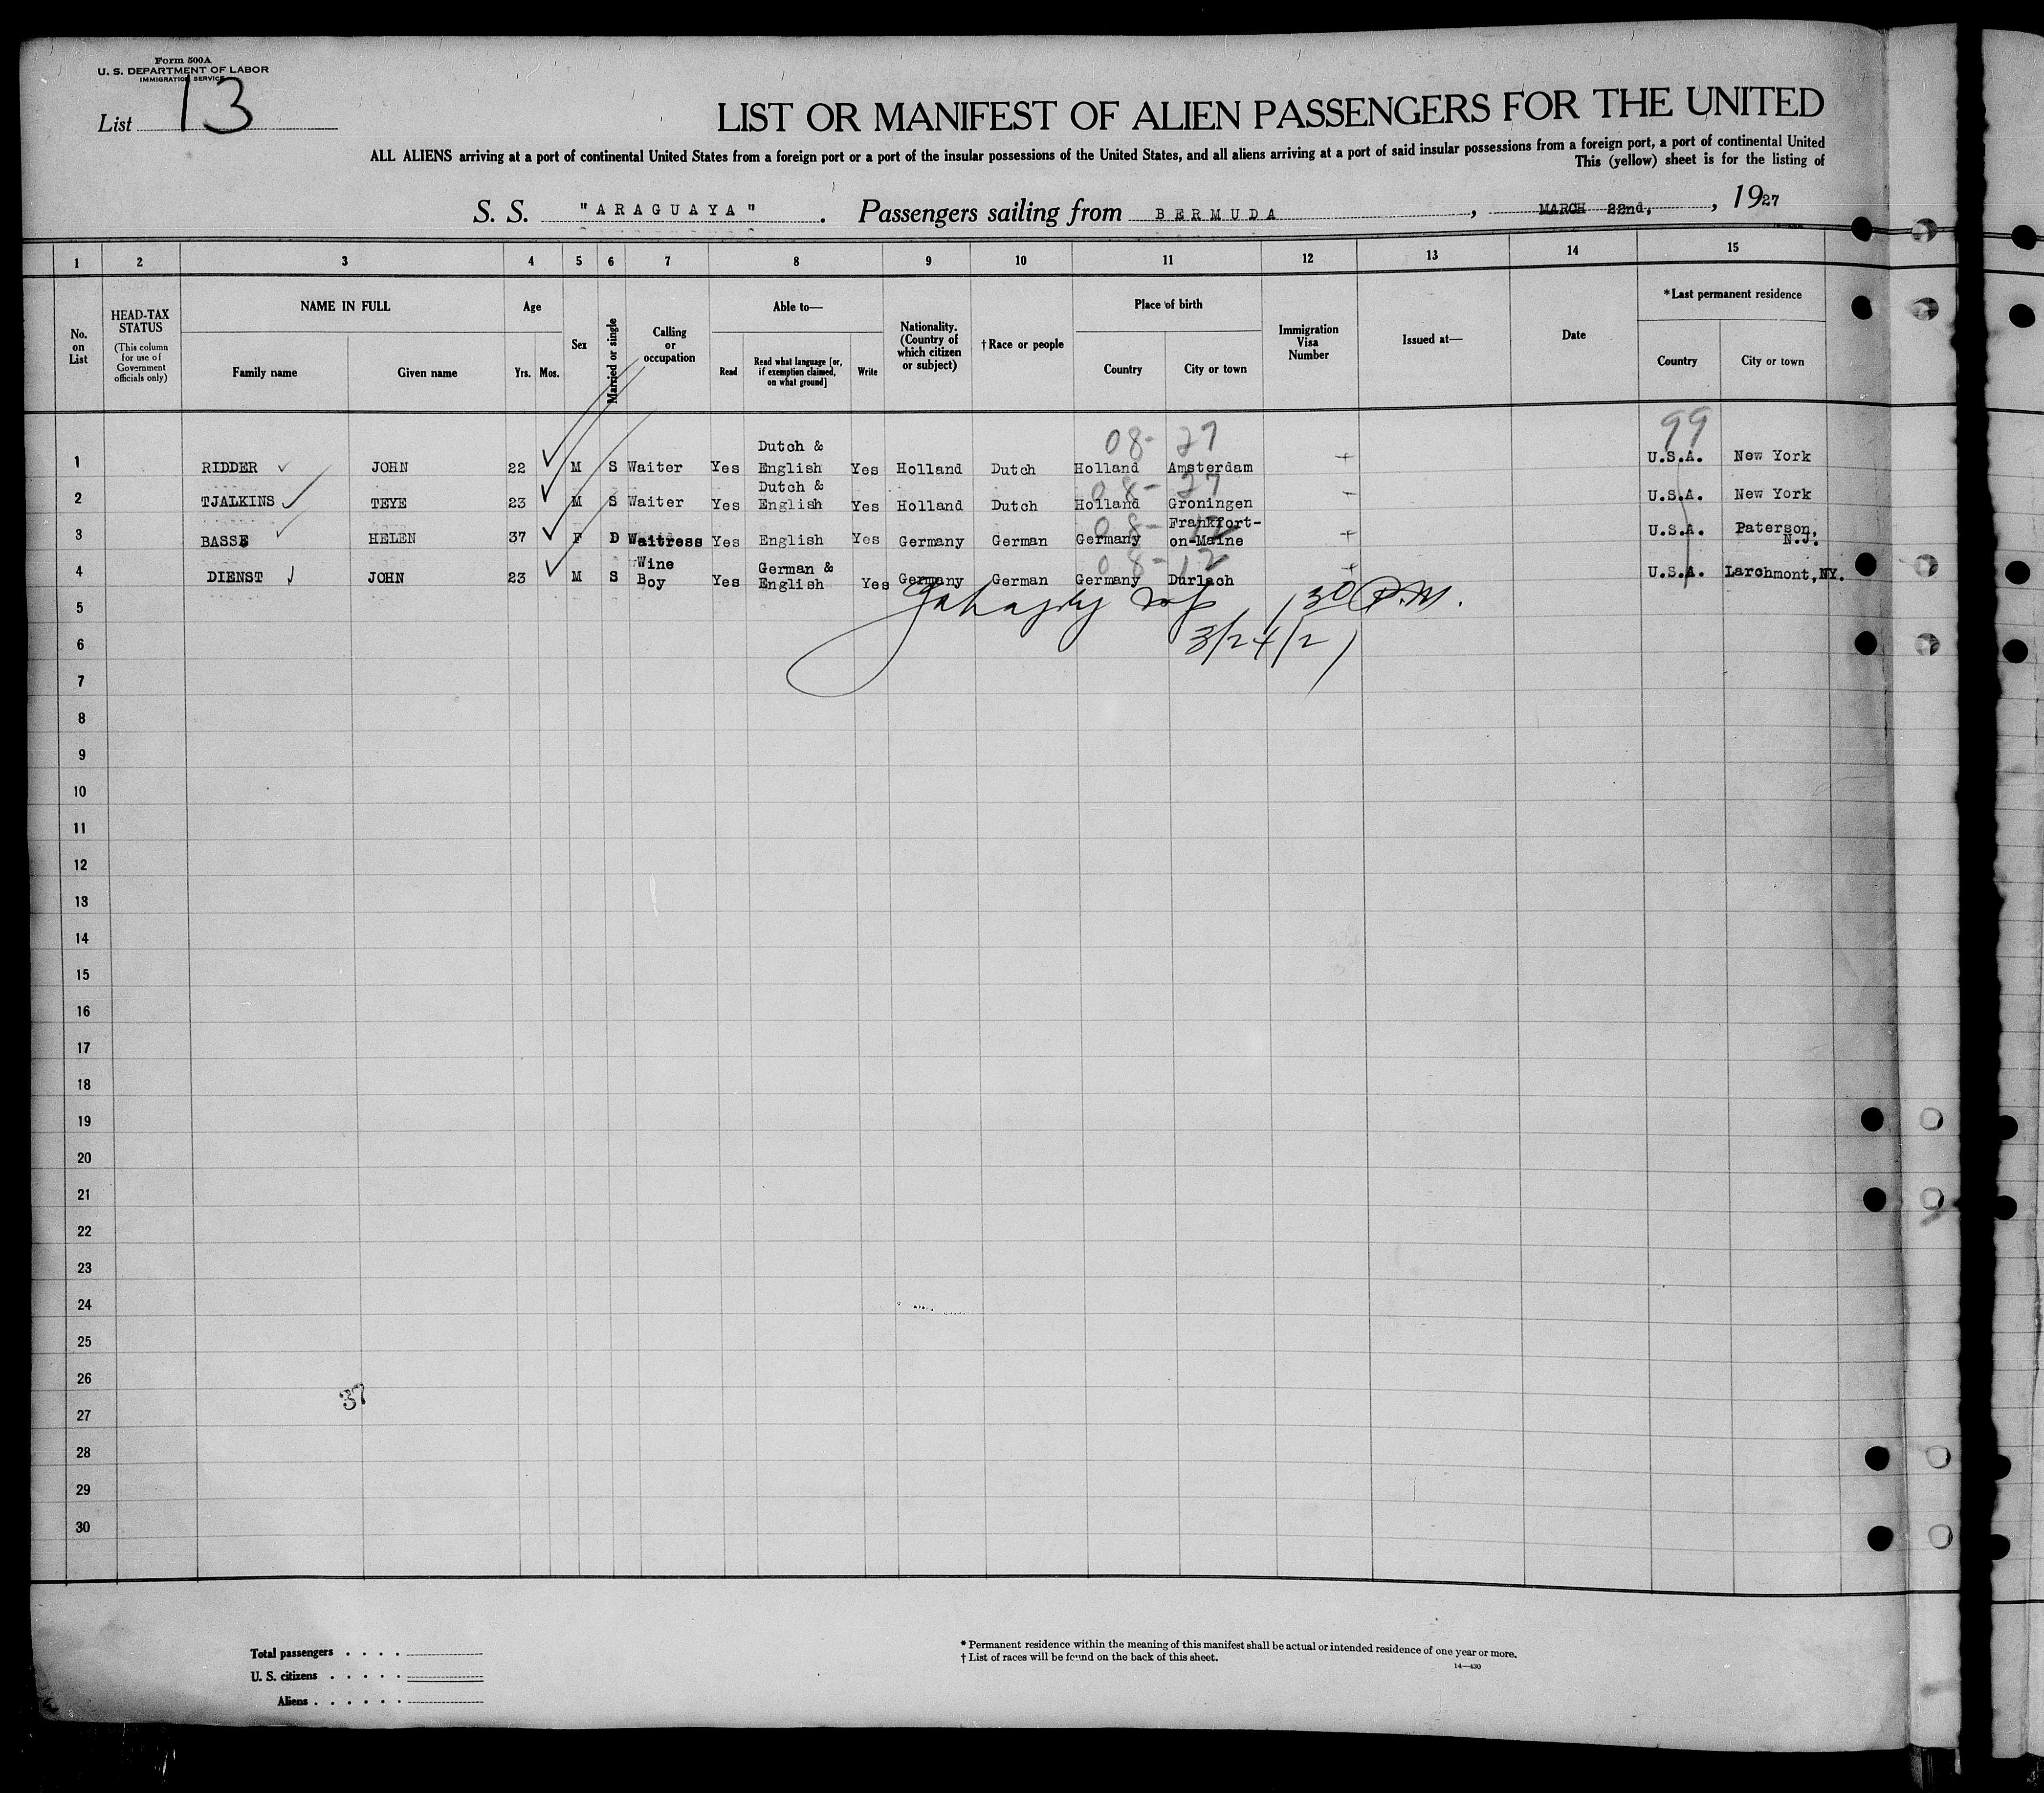 Form 500A
U. S. DEPARTMENT OF LABOR
IMMIGRATION SERVICE
List 13
LIST OR MANIFEST OF ALIEN PASSENGERS FOR THE UNITED
ALL ALIENS arriving at a port of continental United States from a foreign port or a port of the insular possessions of the United States, and all aliens arriving at a port of said insular possessions from a foreign port, a port of continental United
This (yellow) sheet is for the listing of
S. S. "ARAGUAYA" . Passengers sailing from BERMUDA , MARCH 22nd, , 1927
1 2 3 4 5 6 7 8 9 10 11 12 13 14 15
No. on List
HEAD-TAX STATUS
(This column for use of Government officials only)
NAME IN FULL
Family name Given name
Age
Yrs. Mos.
Sex
Married or single
Calling or occupation
Able to—
Read
Read what language [or, if exemption claimed, on what ground]
Write
Nationality. (Country of which citizen or subject)
†Race or people
Place of birth
Country City or town
Immigration Visa Number
Issued at—
Date
*Last permanent residence
Country City or town
08- 27 99
1 RIDDER JOHN 22 M S Waiter Yes Dutch & English Yes Holland Dutch Holland Amsterdam U.S.A. New York
08- 27
2 TJALKINS TEYE 23 M S Waiter Yes Dutch & English Yes Holland Dutch Holland Groningen U.S.A. New York
08- 12
3 BASSE HELEN 37 F D Waitress Yes English Yes Germany German Germany Frankfort-on-Maine U.S.A. Paterson, N.J.
08-12
4 DIENST JOHN 23 M S Wine Boy Yes German & English Yes Germany German Germany Durlach U.S.A. Larchmont, NY.
5 1 30 P.M.
6 3/24/27
7
8
9
10
11
12
13
14
15
16
17
18
19
20
21
22
23
24
25
26
37
27
28
29
30
Total passengers . . . .
U. S. citizens . . . . .
Aliens . . . . . .
* Permanent residence within the meaning of this manifest shall be actual or intended residence of one year or more.
† List of races will be found on the back of this sheet.
14—430